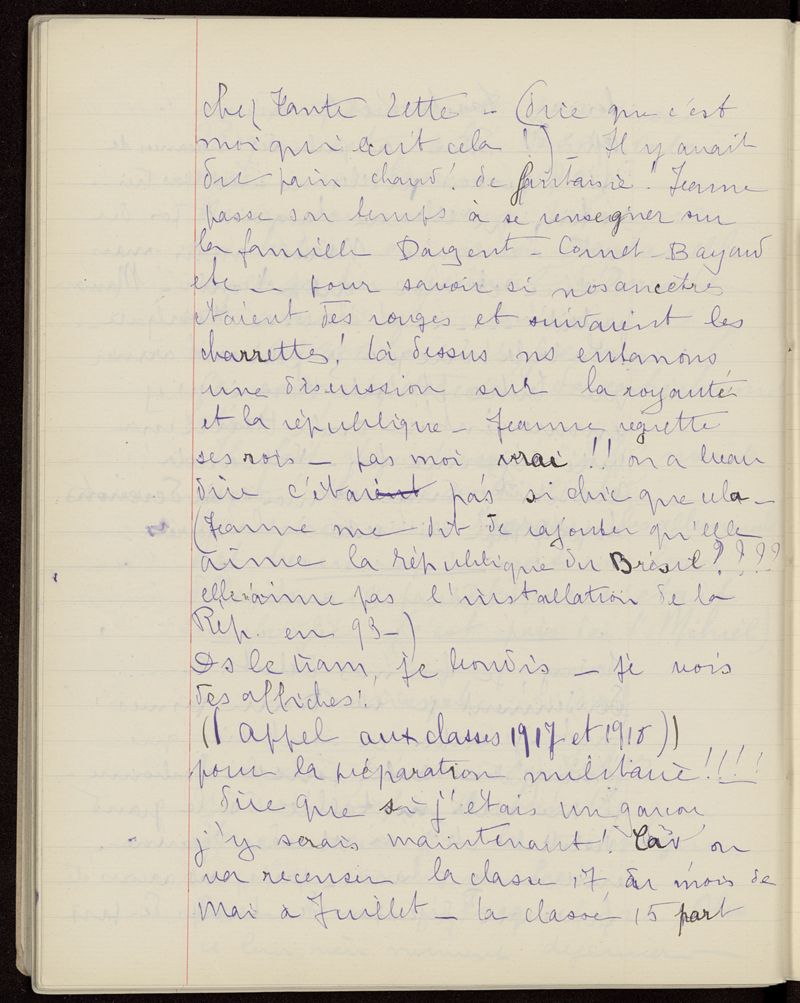 chez Tante Zette - (dire que c'est
moi qui écrit cela !) - Il y avait
du pain chaud ! de fantaisie ! Jeanne
passe son temps à se renseigner sur
la famille Dargent - Cornet - Bayard
etc - pour savoir si nos ancêtres
étaient des rouges et suivaient les
charrettes ! là dessus ns entamons
une discussion sur la royauté
et la république - Jeanne regrette
ses rois - pas moi vrai !! on a beau
dire c'était pas si chic que cela -
(Jeanne me dit de rajouter qu'elle
aime la république du Brésil ????
elle n'aime pas l'installation de la
Rép. en 93 -)
Ds le tram, je bondis - je vois
des affiches :
((appel aux classes 1917 et 1918))
pour la préparation militaire !!!!
dire que si j'étais un garçon
j'y serais maintenant ! Car on
va recenser la classe 17 du mois de
Mai à Juillet - la classe 15 part